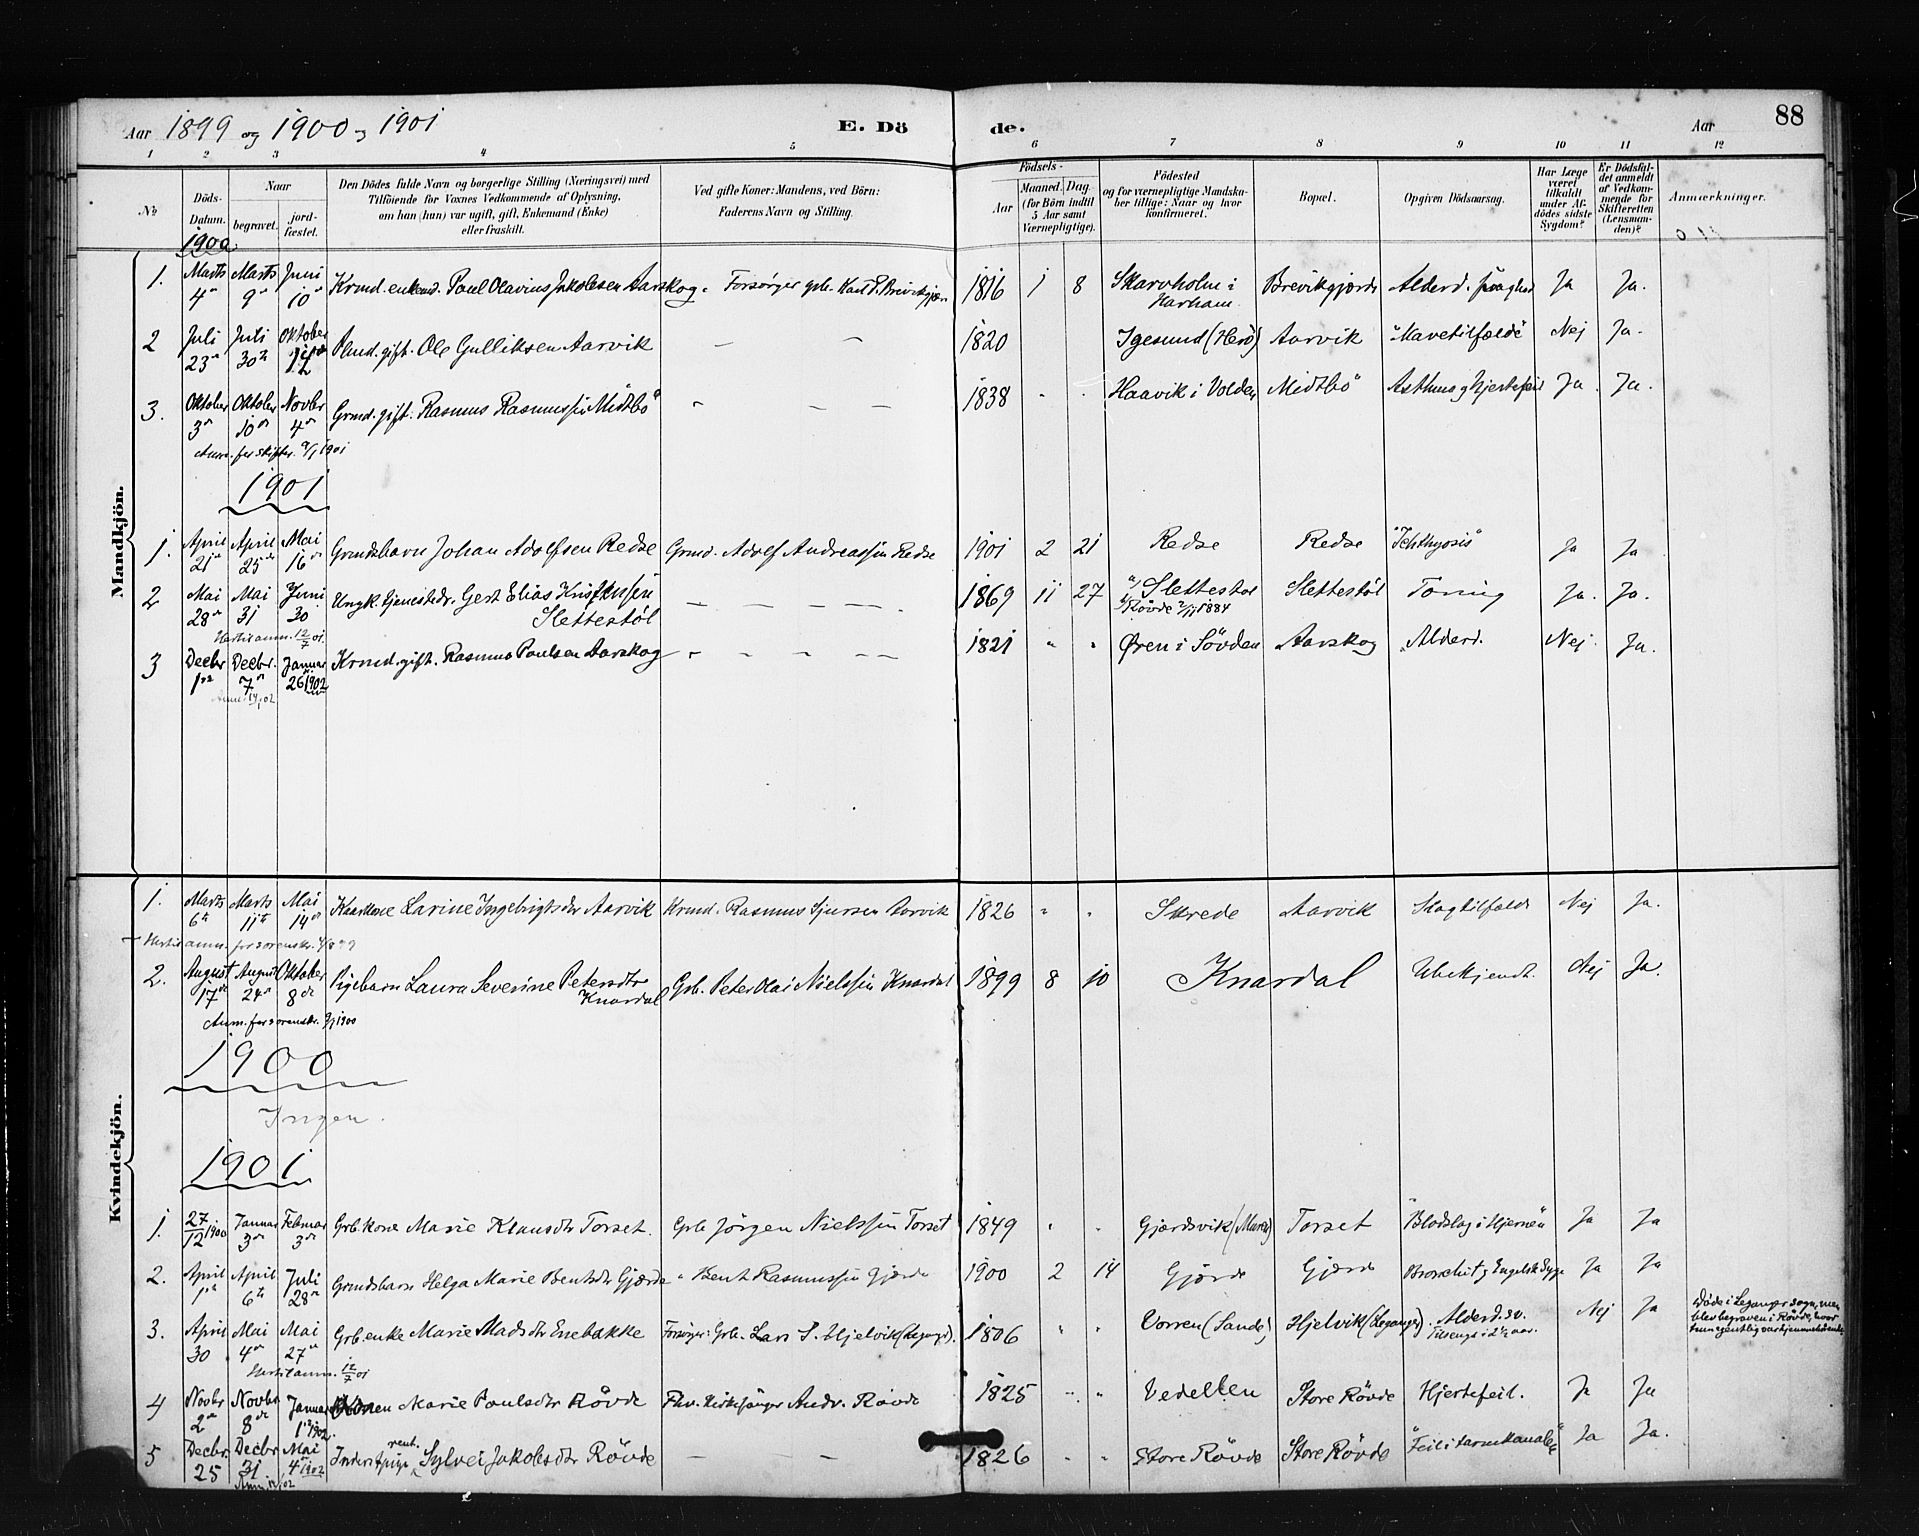 Aar 1899 og 1900 og 1901 E. Dö de. Aar 88
1 2 3 4 5 6 7 8 9 10 11 12
No. Döds-Datum. Naar begravet. jordfæstet. Den Dödes fulde Navn og borgerlige Stilling (Næringsvei) med Tilföiende for Voxnes Vedkommende af Oplysning, om han (hun) var ugift, gift, Enkemand (Enke) eller fraskilt. Ved gifte Koner: Mandens, ved Börn: Faderens Navn og Stilling. Födsels- Aar Maaned. Dag. (for Börn indtil 5 Aar samt Værnepligtige). Födested og for værnepligtige Mandskaber tillige: Naar og hvor konfirmeret. Bopæl. Opgiven Dödsaarsag. Har Læge været tilkaldt under Afdödes sidste Sygdom? Er Dödsfaldet anmeldt af Vedkommende for Skifteretten (Lensmanden)? Anmærkninger.
Mandkjön.
1900
1. Marts 4de Marts 9de Juni 10de Krmd. enkemd. Paul Olavius Jakobsen Aarskog. Forsørger gbr. Karl P. Brevikgjær 1816 1 8 Skarvholm i Harham Brevikgjærde Alderd. svaghed Ja Ja.
2 Juli 23de Juli 30te Oktober Plmd. gift. Ole Gulliksen Aarvik — — 1820 Igesund (Herö) Aarvik "Mavetilfælde" Nej Ja.
3. Oktober 3de Oktober 10de Novbr 4de Grmd. gift. Rasmus Rasmussen Midtbö — — 1838 " " Haavik i Volden Midtbö Asthma og hjertefeil Ja. Ja.
Anm. for skifter. 9/1 1901
1901
1. April 21de April 25de Mai 16de Grmdsbarn Johan Adolfsen Redse Grmd. Adolf Andreassen Redse 1901 2 21 Redse Redse "Ichthyosis" Ja Ja
2 Mai 28de Mai 31 Juni 30 Ungk. tjenestedr. Gert Elias Kristensen Slettestöl — — 1869 11 27 Slettestöl Rövde 1884 Slettestöl Tæring Ja. Ja.
Hertil anm. 12/7 01.
3 Decbr 1ste Decbr. 7de Januar 26 1902 Krmd. gift. Rasmus Paulsen Aarskog — — 1821 " " Øren i Sövden Aarskog Alderd. Nej. Ja.
Kvindekjön.
1. Marts 6te Marts 11te Mai 14de Kaarkone Larine Ingebrigtsdtr Aarvik Krmd. Rasmus Sjursen Aarvik 1826 " " Skrede Aarvik Slagtilfælde Nej Ja.
Hertil anm. for sorenskr.
2. August 17de August 24de Oktober 8de Pigebarn Laura Severine Petersdtr Knardal Gbr. Peter Olai Nielssen Knardal 1899 8 10 Knardal Ubekjendt. Nej Ja.
Anm. for sorenskr. 9/1 1900
1900
Ingen.
1901
1. 27/12 1900 Januar 3de Februar 3de Grbkone Marie Klausdtr Torset. Grb Jörgen Nielssen Torset 1849 " " Gjærdsvik Torset "Blodslag i Hjernen" Ja Ja
2. April 1ste April 6te Juli 28de Grmdsbarn Helga Marie Bentsdtr Gjærde " Bent Rasmussen Gjærde 1900 2 14 Gjærde Gjærde Bronchit og Engelsk Syge Ja Ja
3. April 30 Mai 4de Mai 27de Grb. enke Marie Madsdtr Enebakke Forsörger: Grb. Lars S. Hjelvik (Leganger). 1806 " " Vorren (Sande) Hjelvik (Leganger) Alderd. sv. Tilsengs i 2 1/2 aar. Nej Ja Döde i Leganger sogn, men blev begraven i Rövde, hvor hun egentlig var hjemmehörende
Hertil anm. 12/7 01
4 Novbr 2de Novbr 8de Januar 1ste 1902. Marie Paulsdtr Rövde Fhv. Kirkesanger Andr. Rövde 1825 " " Vedelden Store Rövde Hjertefeil. Ja Ja
5 Decbr. 25 Decbr 31 Mai 4de 1902 Inderstpige rent. Sylvei Jakobsdtr Rövde — — 1826 " " Store Rövde Store Rövde "Feil i tarmkanalen" Ja Ja.